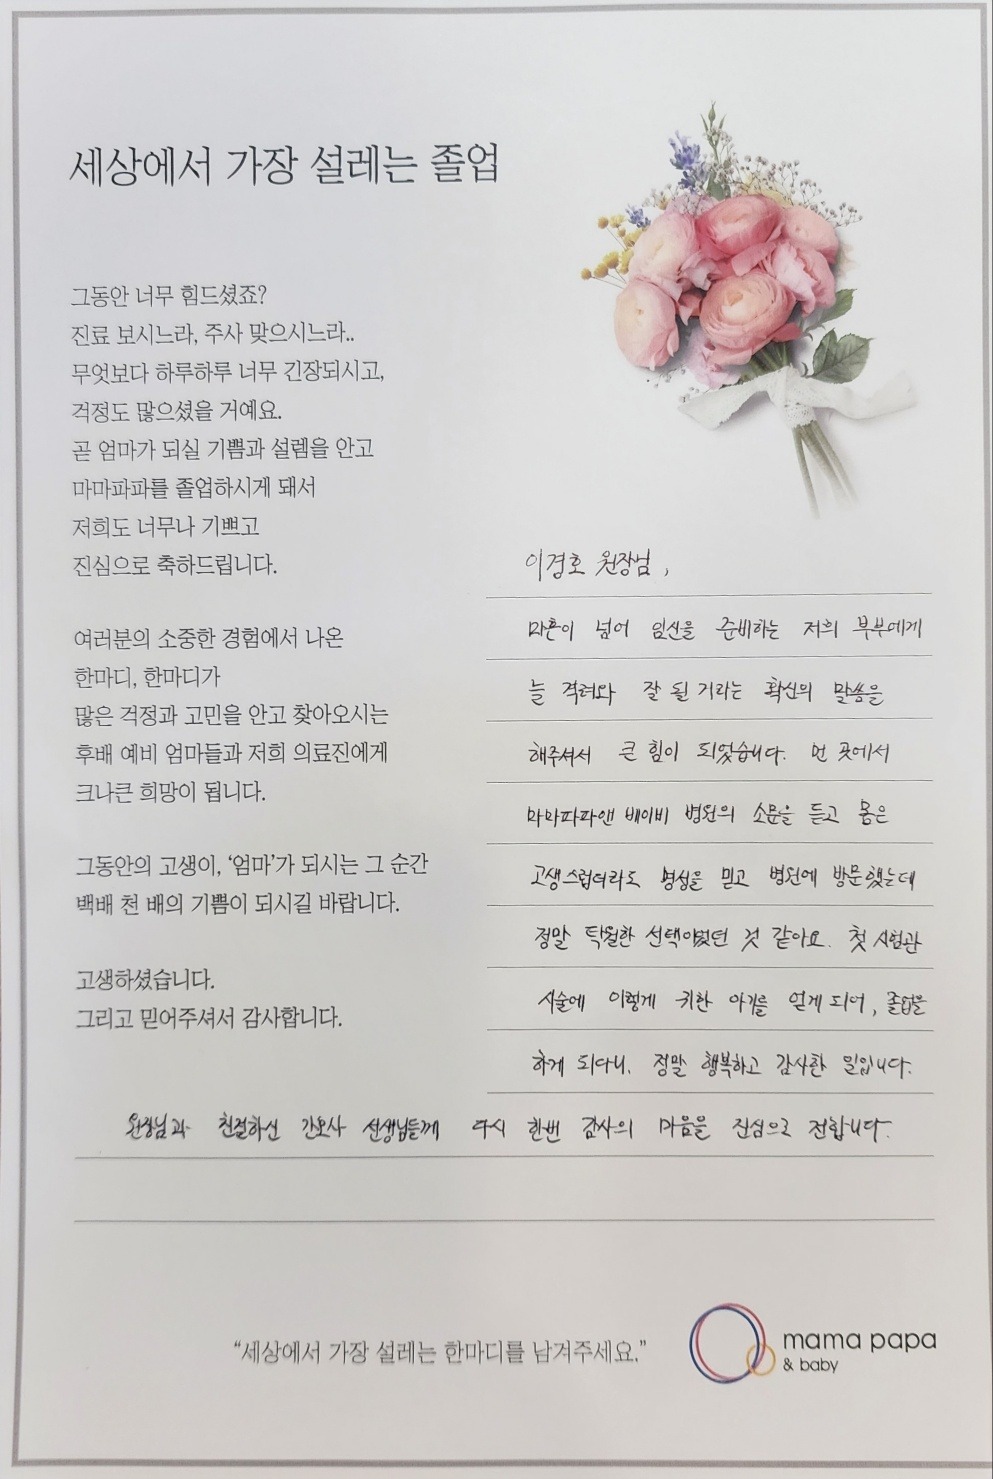 세상에서 가장 설레는 졸업
그동안 너무 힘드셨죠?
진료 보시느라, 주사 맞으시느라..
무엇보다 하루하루 너무 긴장되시고,
걱정도 많으셨을 거예요.
곧 엄마가 되실 기쁨과 설렘을 안고
마마파파를 졸업하시게 돼서
저희도 너무나 기쁘고
진심으로 축하드립니다.
여러분의 소중한 경험에서 나온
한마디, 한마디가
많은 걱정과 고민을 안고 찾아오시는
후배 예비 엄마들과 저희 의료진에게
크나큰 희망이 됩니다.
그동안의 고생이, ‘엄마’가 되시는 그 순간
백배 천 배의 기쁨이 되시길 바랍니다.
고생하셨습니다.
그리고 믿어주셔서 감사합니다.
이경호 원장님,
마흔이 넘어 임신을 준비하는 저희 부부에게
늘 격려와 잘 될 거라는 확신의 말씀을
해주셔서 큰 힘이 되었습니다. 먼 곳에서
마마파파앤 베이비 병원의 소문을 듣고 몸은
고생스럽더라도 명성을 믿고 병원에 방문했는데
정말 탁월한 선택이었던 것 같아요. 첫 시험관
시술에 이렇게 귀한 아기를 얻게 되어, 졸업을
하게 되다니, 정말 행복하고 감사한 일입니다.
원장님과 친절하신 간호사 선생님들께 다시 한번 감사의 마음을 진심으로 전합니다.
“세상에서 가장 설레는 한마디를 남겨주세요.”
mama papa
& baby